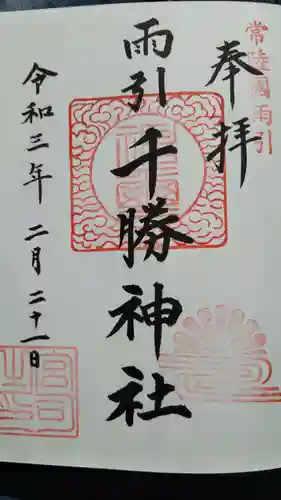 常陸國雨引
奉拝
雨引千勝神社
令和三年二月二十一日